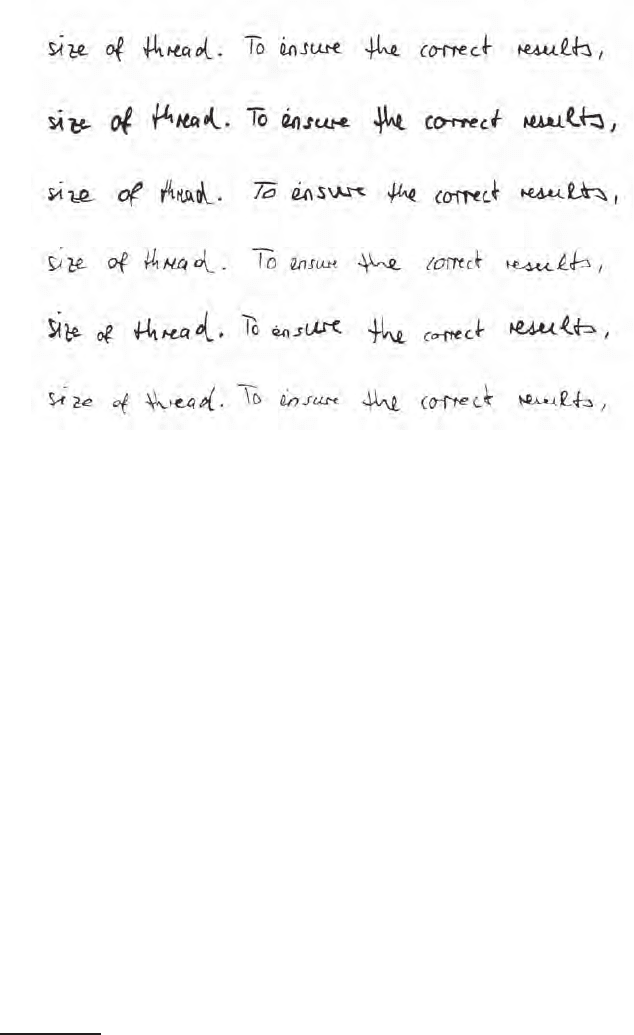 size of thread. To ensure the correct results,
size of thread. To ensure the correct results,
size of thread. To ensure the correct results,
size of thread. To ensure the correct results,
size of thread. To ensure the correct results,
size of thread. To ensure the correct results,